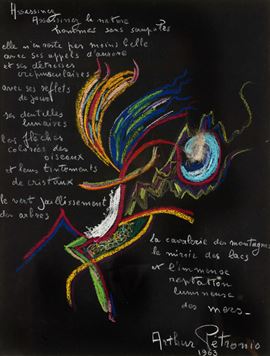 Assassiner
Assassinez la nature
hommes sans scrupules
elle n'en reste pas moins belle
avec ses appels d'aurore
et ses détresses
crépusculaires
avec ses reflets
de jour
ses dentelles
lunaires
les flèches
colorées des
oiseaux
et leurs tintements
de cristaux
le vert jaillissement
des arbres
la cavalerie des montagnes
le miroir des lacs
et l'immense
reptation
lumineuse
des mers
Arthur Petronio
1963